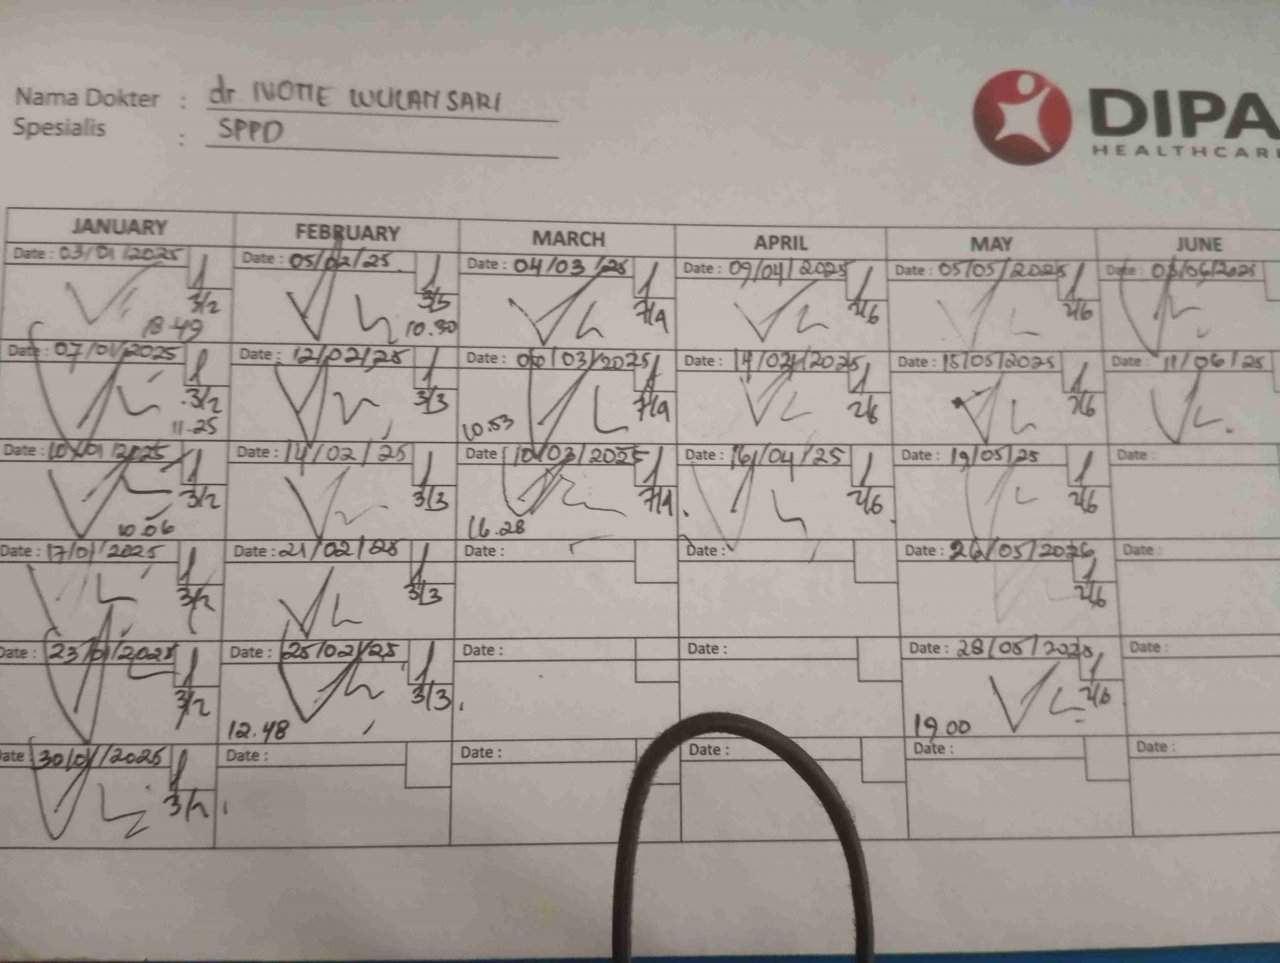 Nama Dokter : dr IVOTIE WULAN SARI
Spesialis : SPPD
DIPA
HEALTHCAR
JANUARY FEBRUARY MARCH APRIL MAY JUNE
Date : 03/01/2025 Date : 05/02/25 Date : 04/03/25 Date : 09/04/2025 Date : 05/05/2025 Date : /06/2025
3/2 3/3 7/4 2/6 2/6
18.49 10.30
Date : 07/01/2025 Date : 12/02/25 Date : /03/2025 Date : 14/04/2025 Date : 15/05/2025 Date : 11/06/25
3/2 3/3 7/4 2/6 2/6
11.25 10.53
Date : 10/01/2025 Date : 14/02/25 Date : 10/03/2025 Date : 16/04/25 Date : 19/05/25 Date :
3/2 3/3 7/4 2/6 2/6
10.06 16.28
Date : 17/01/2025 Date : 21/02/25 Date : Date : Date : 26/05/2025 Date :
3/2 3/3 2/6
Date : 23/01/2025 Date : 25/02/25 Date : Date : Date : 28/05/2025 Date :
3/2 3/3 2/6
12.48 19.00
Date : 30/01/2025 Date : Date : Date : Date : Date :
3/2